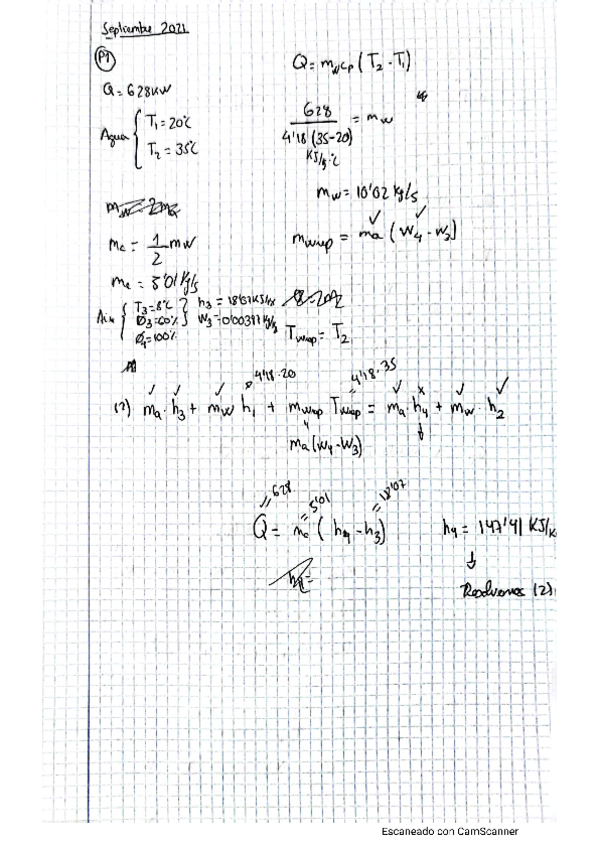 Septiembre 2021
P1
Q = 628 kW
Agua { T1 = 20°C
T2 = 35°C
Q = mw cp (T2 - T1)
628 / 4'18 (35-20) = mw
KJ/ °C
mw = 10'02 kg/s
ma = 1/2 mw
ma = 5'01 kg/s
mwrep = ma (W4 - W3)
Aire { T3 = 8°C
Ø3 = 60%
Ø4 = 100%
} h3 = 18'07 KJ/
W3 = 0'00397 kg/
Twrep = T2
4'18·20
4'18·35
(2) ma · h3 + mw h1 + mwrep Twrep = ma · h4 + mw · h2
ma (W4 - W3)
= 628
= 5'01
= 18'07
Q = ma ( h4 - h3 )
h4 = 147'41 KJ/K
Resolvemos (2)
Escaneado con CamScanner